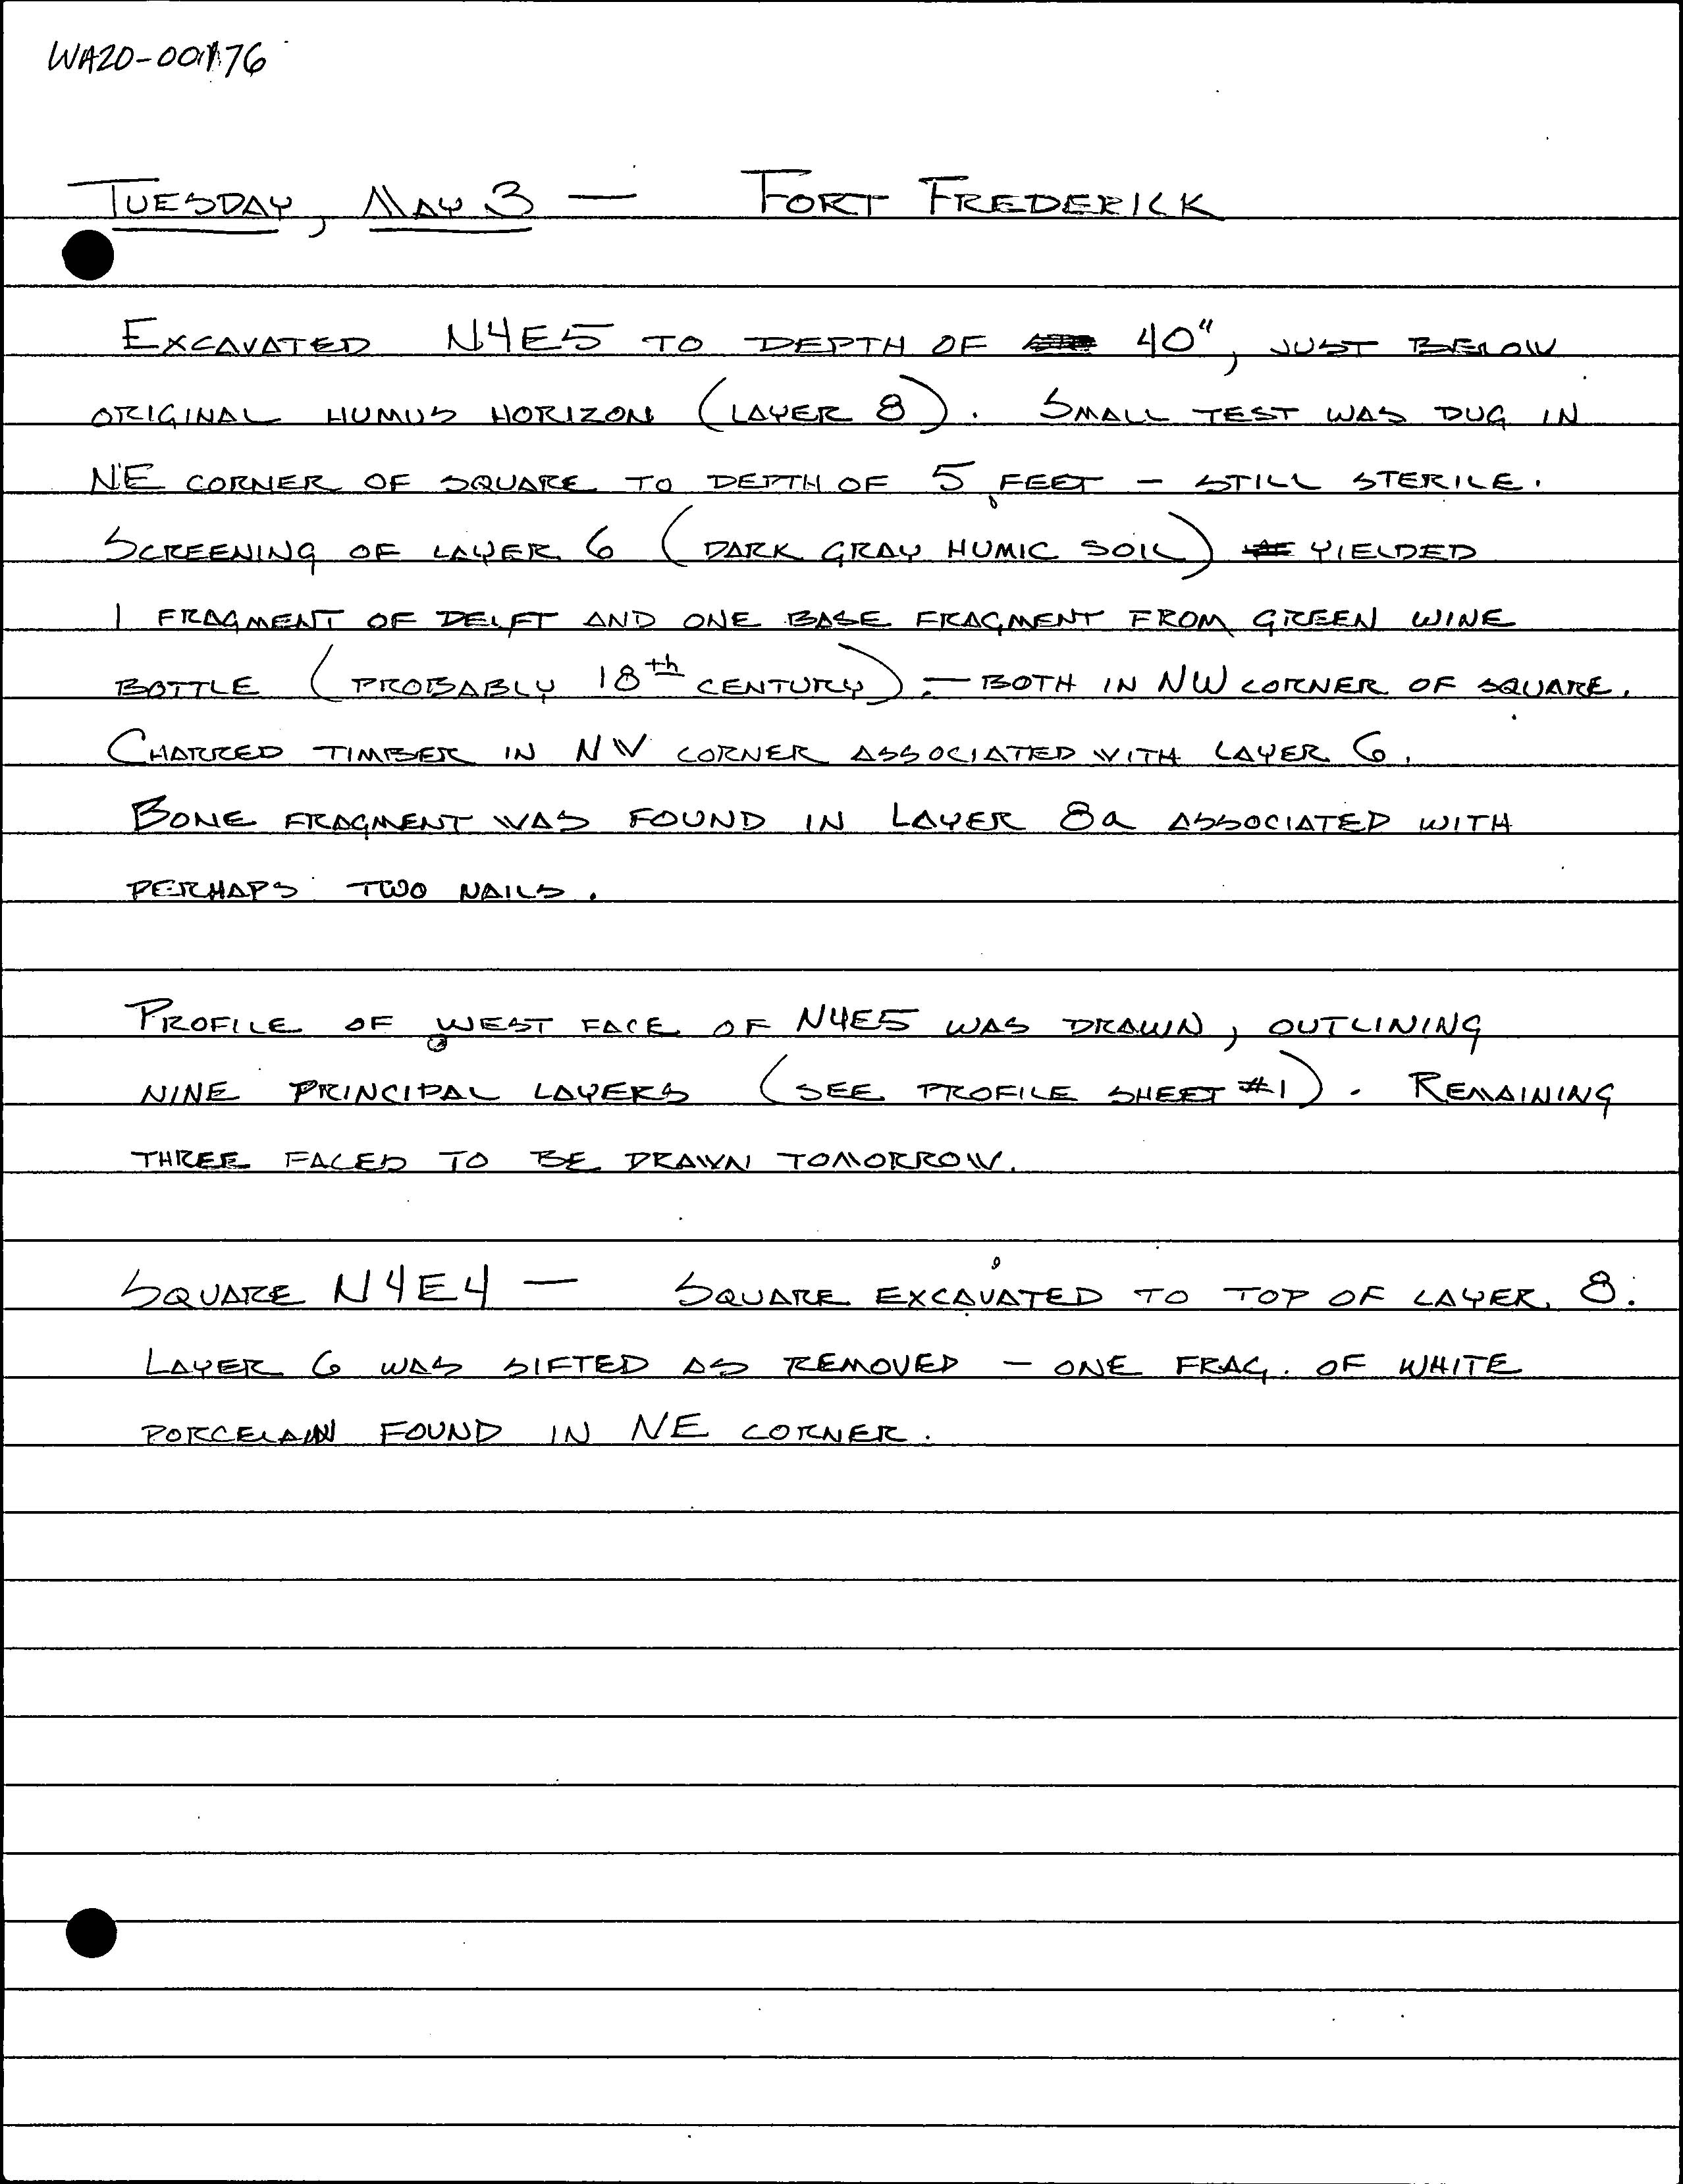 WA20-00176
TUESDAY, MAY 3 — FORT FREDERICK
EXCAVATED N4E5 TO DEPTH OF 40", JUST BELOW
ORIGINAL HUMUS HORIZON (LAYER 8). SMALL TEST WAS DUG IN
NE CORNER OF SQUARE TO DEPTH OF 5 FEET - STILL STERILE.
SCREENING OF LAYER 6 (DARK GRAY HUMIC SOIL) YIELDED
1 FRAGMENT OF DELFT AND ONE BASE FRAGMENT FROM GREEN WINE
BOTTLE (PROBABLY 18th CENTURY) — BOTH IN NW CORNER OF SQUARE.
CHARRED TIMBER IN NW CORNER ASSOCIATED WITH LAYER 6.
BONE FRAGMENT WAS FOUND IN LAYER 8a ASSOCIATED WITH
PERHAPS TWO NAILS.
PROFILE OF WEST FACE OF N4E5 WAS DRAWN, OUTLINING
NINE PRINCIPAL LAYERS (SEE PROFILE SHEET #1). REMAINING
THREE FACES TO BE DRAWN TOMORROW.
SQUARE N4E4 — SQUARE EXCAVATED TO TOP OF LAYER 8.
LAYER 6 WAS SIFTED AS REMOVED - ONE FRAG. OF WHITE
PORCELAIN FOUND IN NE CORNER.